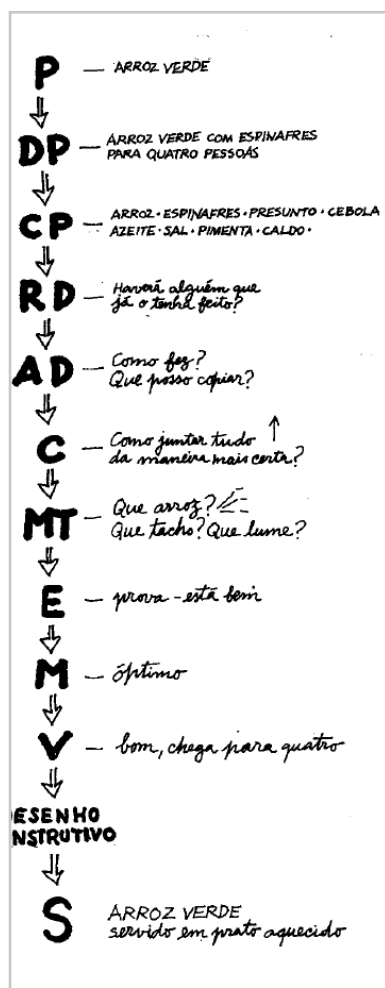 P — ARROZ VERDE
DP — ARROZ VERDE COM ESPINAFRES
PARA QUATRO PESSOAS
CP — ARROZ · ESPINAFRES · PRESUNTO · CEBOLA
AZEITE · SAL · PIMENTA · CALDO ·
RD — Haverá alguém que
já o tenha feito?
AD — Como fez?
Que posso copiar?
C — Como juntar tudo
da maneira mais certa?
MT — Que arroz?
Que tacho? Que lume?
E — prova - está bem
M — óptimo
V — bom, chega para quatro
ESENHO
NSTRUTIVO
S ARROZ VERDE
servido em prato aquecido